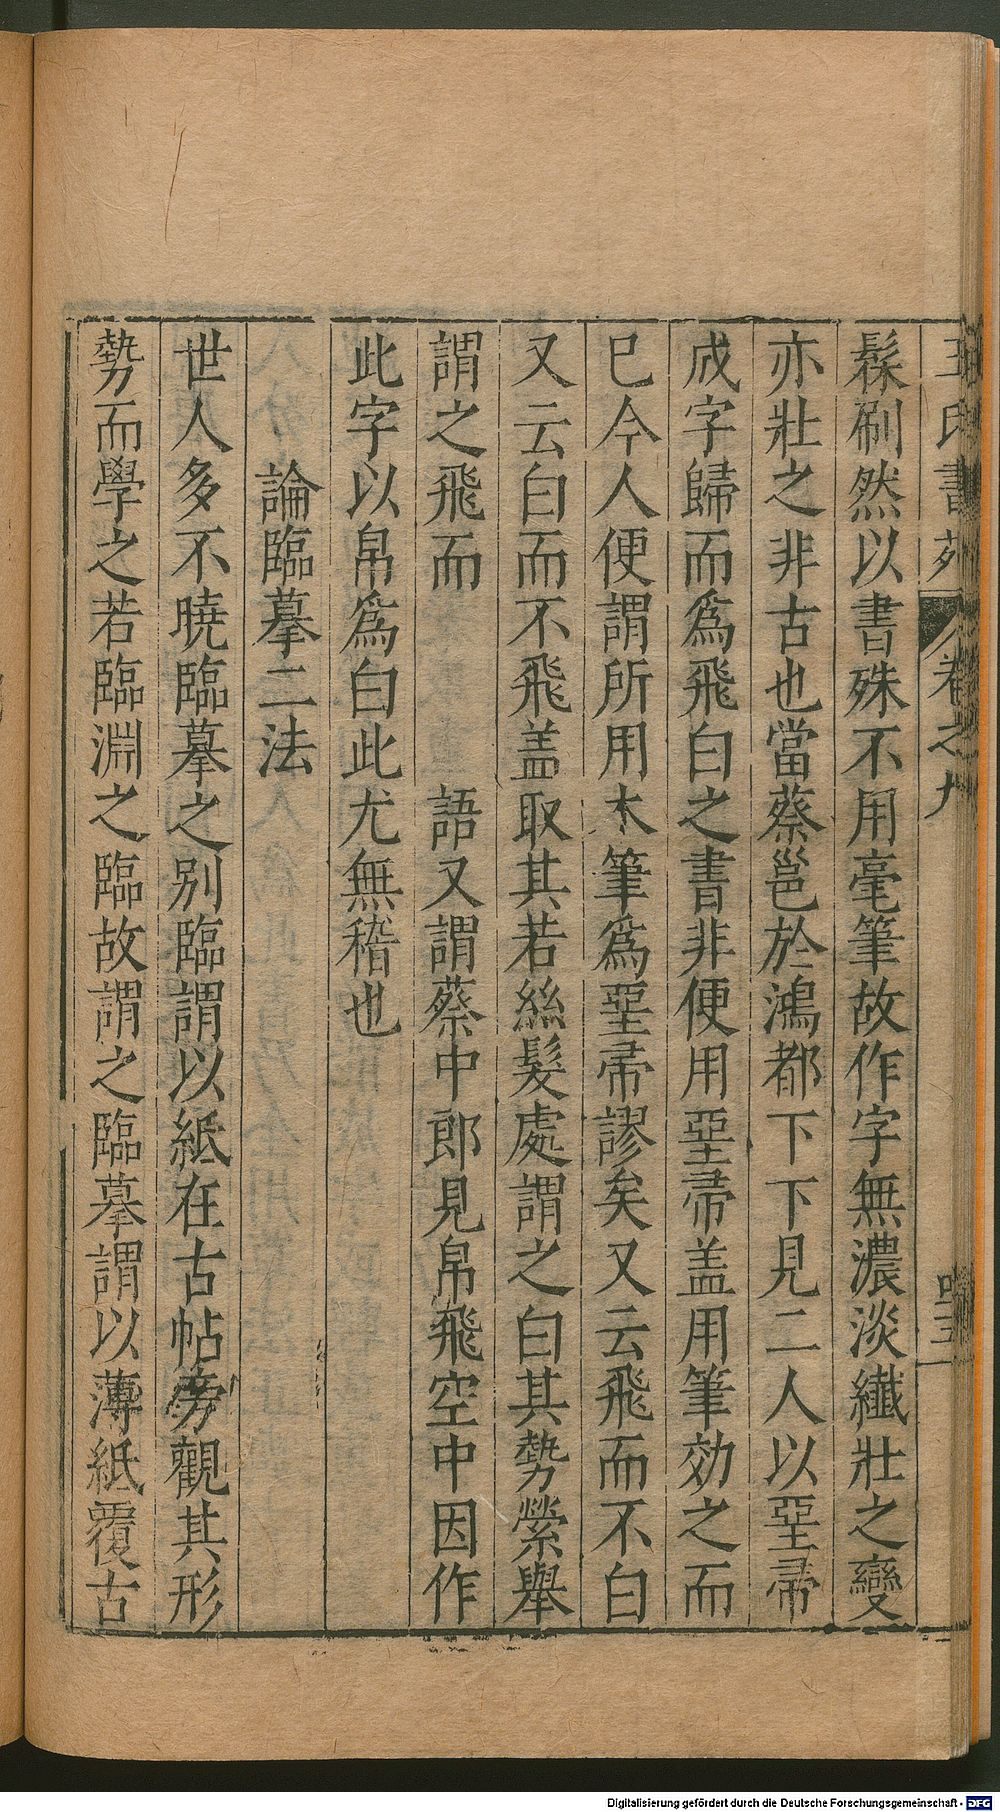 王氏書苑 卷之九
髹刷然以書殊不用毫筆故作字無濃淡纖壯之變
亦壯之非古也當蔡邕於鴻都下下見二人以堊帚
成字歸而爲飛白之書非便用堊帚盖用筆効之而
巳今人便謂所用木筆爲堊帚謬矣又云飛而不白
又云白而不飛盖取其若絲髮處謂之白其勢縈舉
謂之飛而 語又謂蔡中郎見帛飛空中因作
此字以帛爲白此尤無稽也
論臨摹二法
世人多不曉臨摹之别臨謂以紙在古帖旁觀其形
勢而學之若臨淵之臨故謂之臨摹謂以薄紙覆古
Digitalisierung gefördert durch die Deutsche Forschungsgemeinschaft - DFG